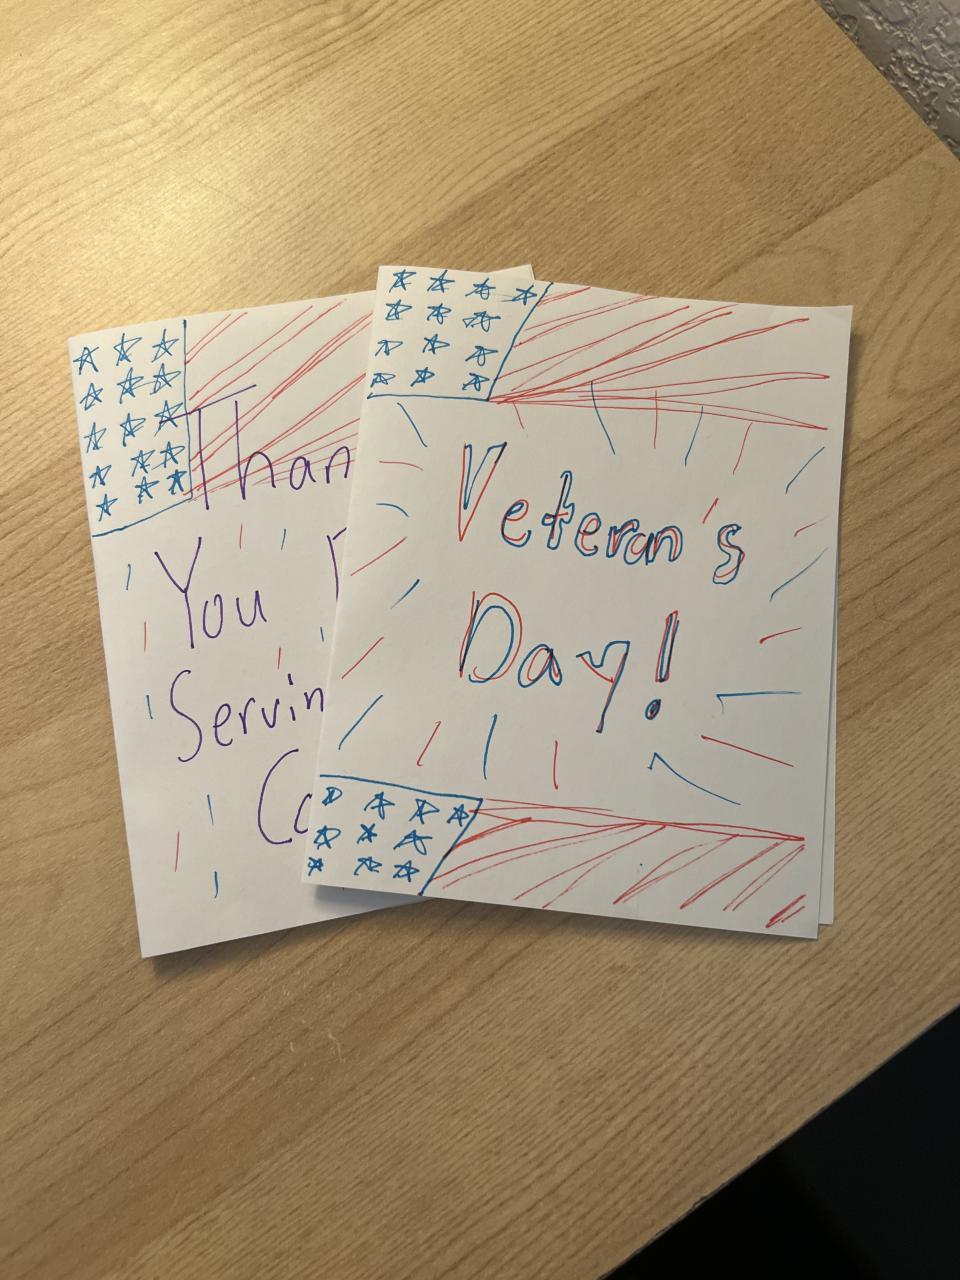 Than
You
Servin
Veteran's
Day!